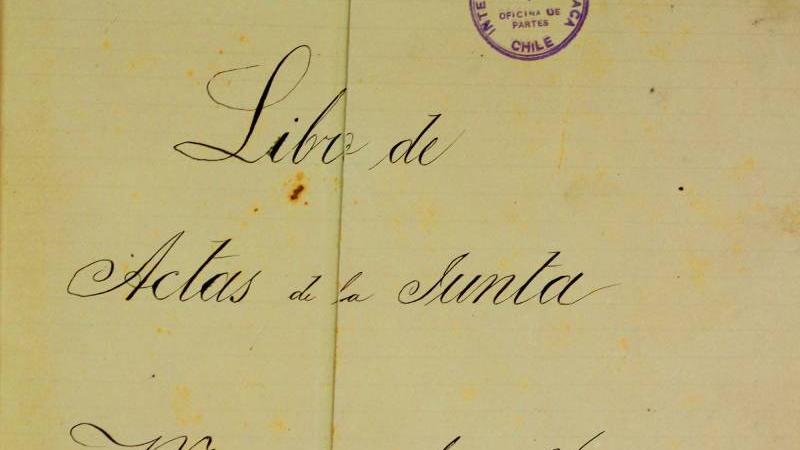 INTE
ACA
OFICINA DE
PARTES
CHILE
Libo de
Actas de la Junta